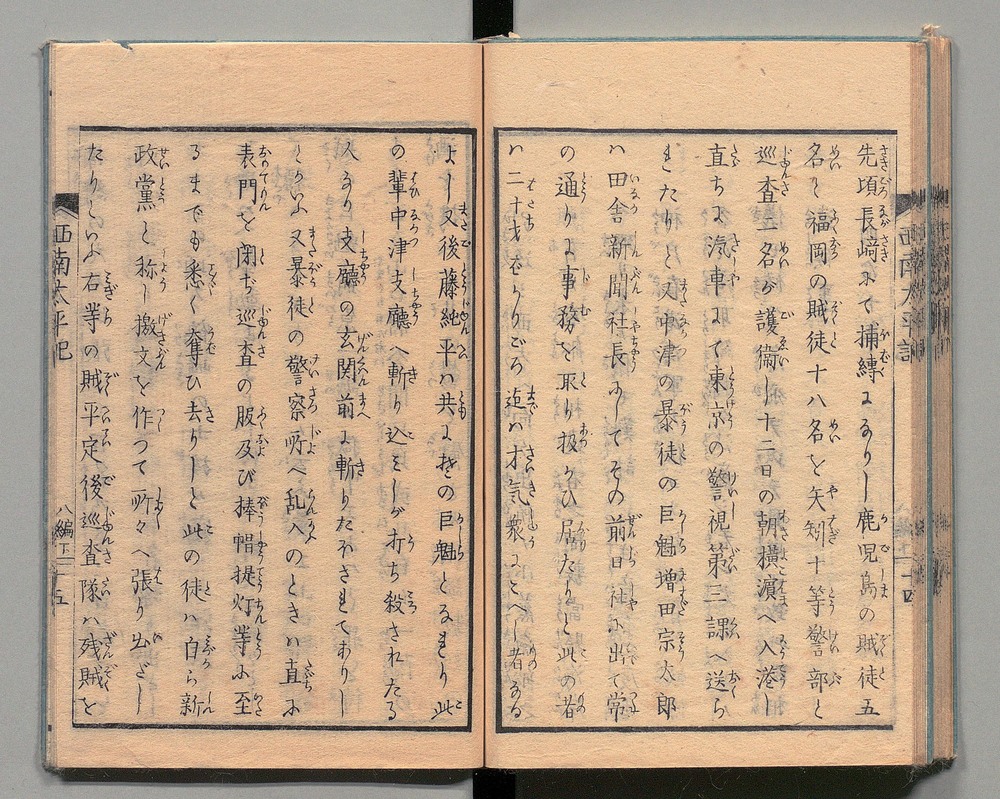 先頃長﨑にて捕縛になりし鹿児島の賊徒五
名と福岡の賊徒十八名を矢刕十等警部と
巡査二名が護衞し十二日の朝横濵へ入港し
直ちに汽車にて東京の警視第三課へ送ら
れたりと又中津の暴徒の巨魁増田宗太郎
ハ田舎新聞社長にしてその前日社に出て常
の通りに事務を取り扱かひ居たりと此の者
ハ二十才ばかりごろ迠ハ才氣衆にこへし者なる
よし又後藤純平ハ共にその巨魁となれり此
の輩中津支廳へ斬り込ミしが打ち殺されたる
人あり支廳の玄関前に斬りたふされてありし
といふ又暴徒の警察所へ乱入のときハ直に
表門を閉ぢ巡査の服及び捧帽提灯等に至
るまでも悉く奪ひ去りしと此の徒ハ自ら新
政黨と称し檄文を作つて所々へ張り出ざし
たりといふ右等の賊平定後巡査隊ハ残賊を
西南太平記
八編下
十五